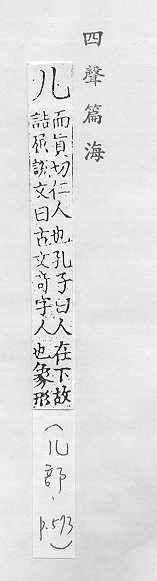 四聲篇海
儿
而眞切仁人也孔子曰人在下故
詰屈說文曰古文奇字人也象形
(儿部、p.593)